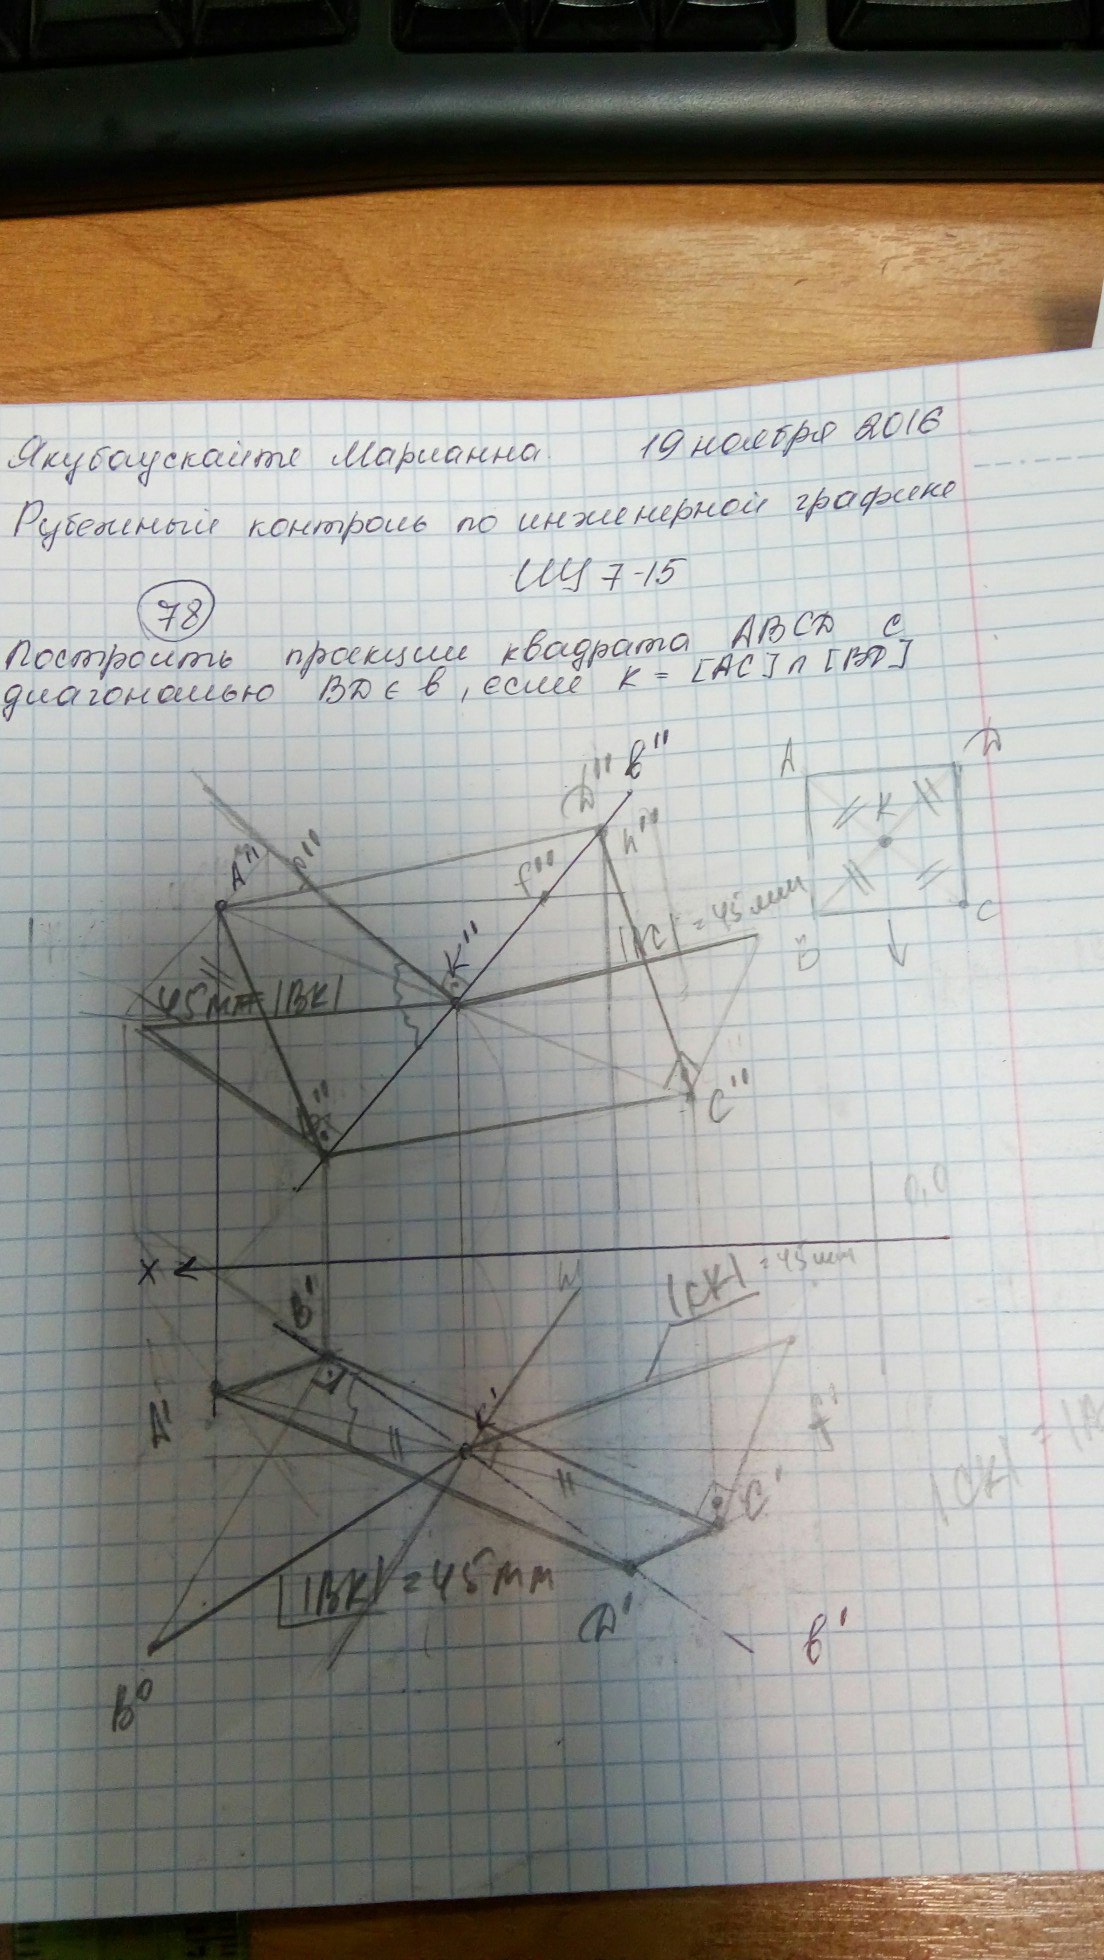 Якубаускайте Марианна. 19 ноября 2016
Рубежный контроль по инженерной графике
ИЦ 7-15
78
Построить проекции квадрата ABCD с
диагональю BD ∈ b, если K = [AC] ∩ [BD]
D" b"
A D
h"
A"
f"
K
K"
|KC| = 45 мм
C
B
45мм=|BK|
B"
C"
0,0
X
|CK| = 45 мм
B'
K'
A'
f'
C'
|CK| =
|BK| = 45 мм
D'
b'
B⁰